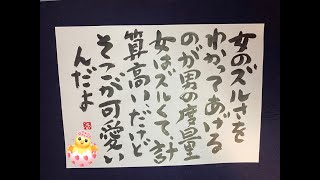 女のズルさを
わかってあげる
のが男の度量
女はズルくて、計
算高いだけど
そこが可愛い
んだよ